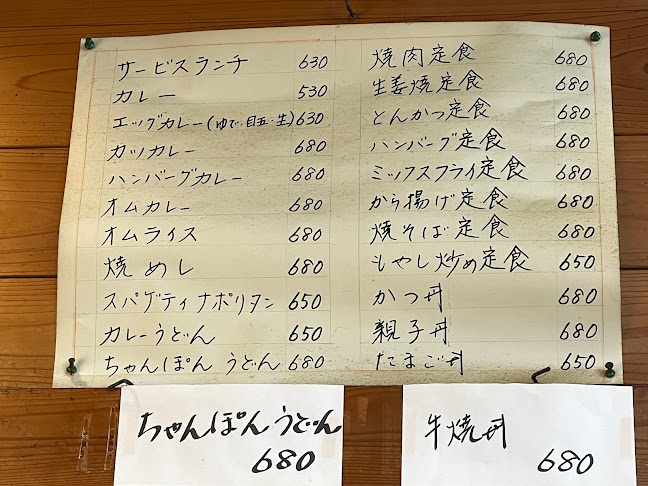 サービスランチ 630
カレー 530
エッグカレー(ゆで・目玉・生) 630
カツカレー 680
ハンバーグカレー 680
オムカレー 680
オムライス 680
焼めし 680
スパゲティナポリタン 650
カレーうどん 650
ちゃんぽんうどん 680
焼肉定食 680
生姜焼定食 680
とんかつ定食 680
ハンバーグ定食 680
ミックスフライ定食 680
から揚げ定食 680
焼そば定食 680
もやし炒め定食 650
かつ丼 680
親子丼 680
たまご丼 650
ちゃんぽんうどん
680
牛焼丼
680